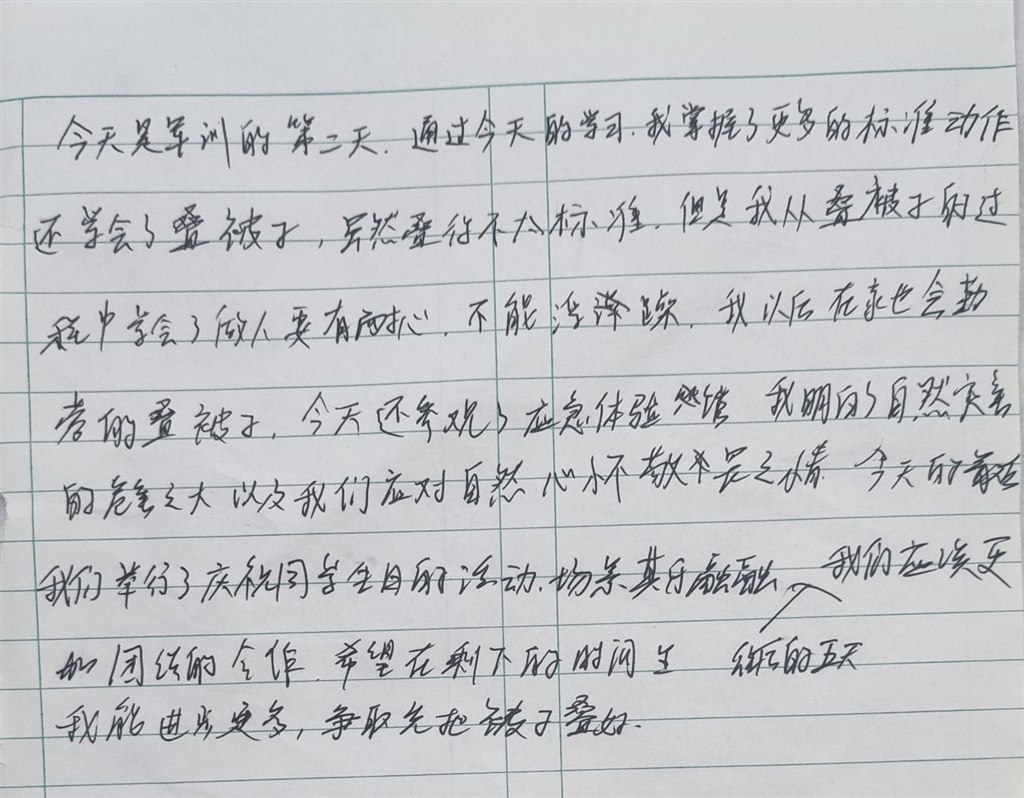 今天是军训的第二天.通过今天的学习.我掌握了更多的标准动作
还学会了叠被子,虽然叠得不太标准.但是我从叠被子的过
程中学会了做人要有耐心.不能浮躁.我以后在家也会勤
劳的叠被子,今天还参观了应急体验馆 我明白了自然灾害
的危害之大以及我们应对自然心怀敬畏之情 今天的最后
我们举行了庆祝同学生日的活动.场景其乐融融 我们应该更
加团结的合作.希望在剩下的时间里 往后的五天
我能进步更多,争取先把被子叠好.